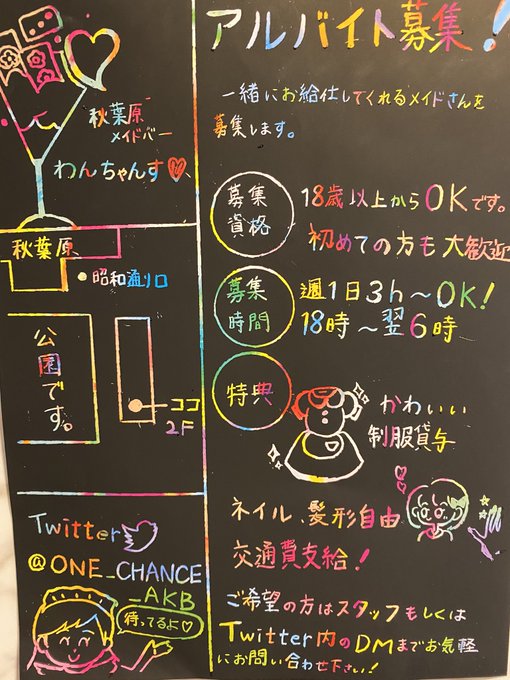 アルバイト募集!
一緒にお給仕してくれるメイドさんを
募集します。
募集
資格
18歳以上からOKです。
初めての方も大歓迎
募集
時間
週1日3h〜OK!
18時〜翌6時
特典
かわいい
制服貸与
ネイル、髪形自由
交通費支給!
ご希望の方はスタッフもしくは
Twitter内のDMまでお気軽
にお問い合わせ下さい!
秋葉原
メイドバー
わんちゃんす♡
秋葉原
昭和通り口
公園です。
ココ
2F
Twitter
@ONE_CHANCE
_AKB
待ってるよ♡